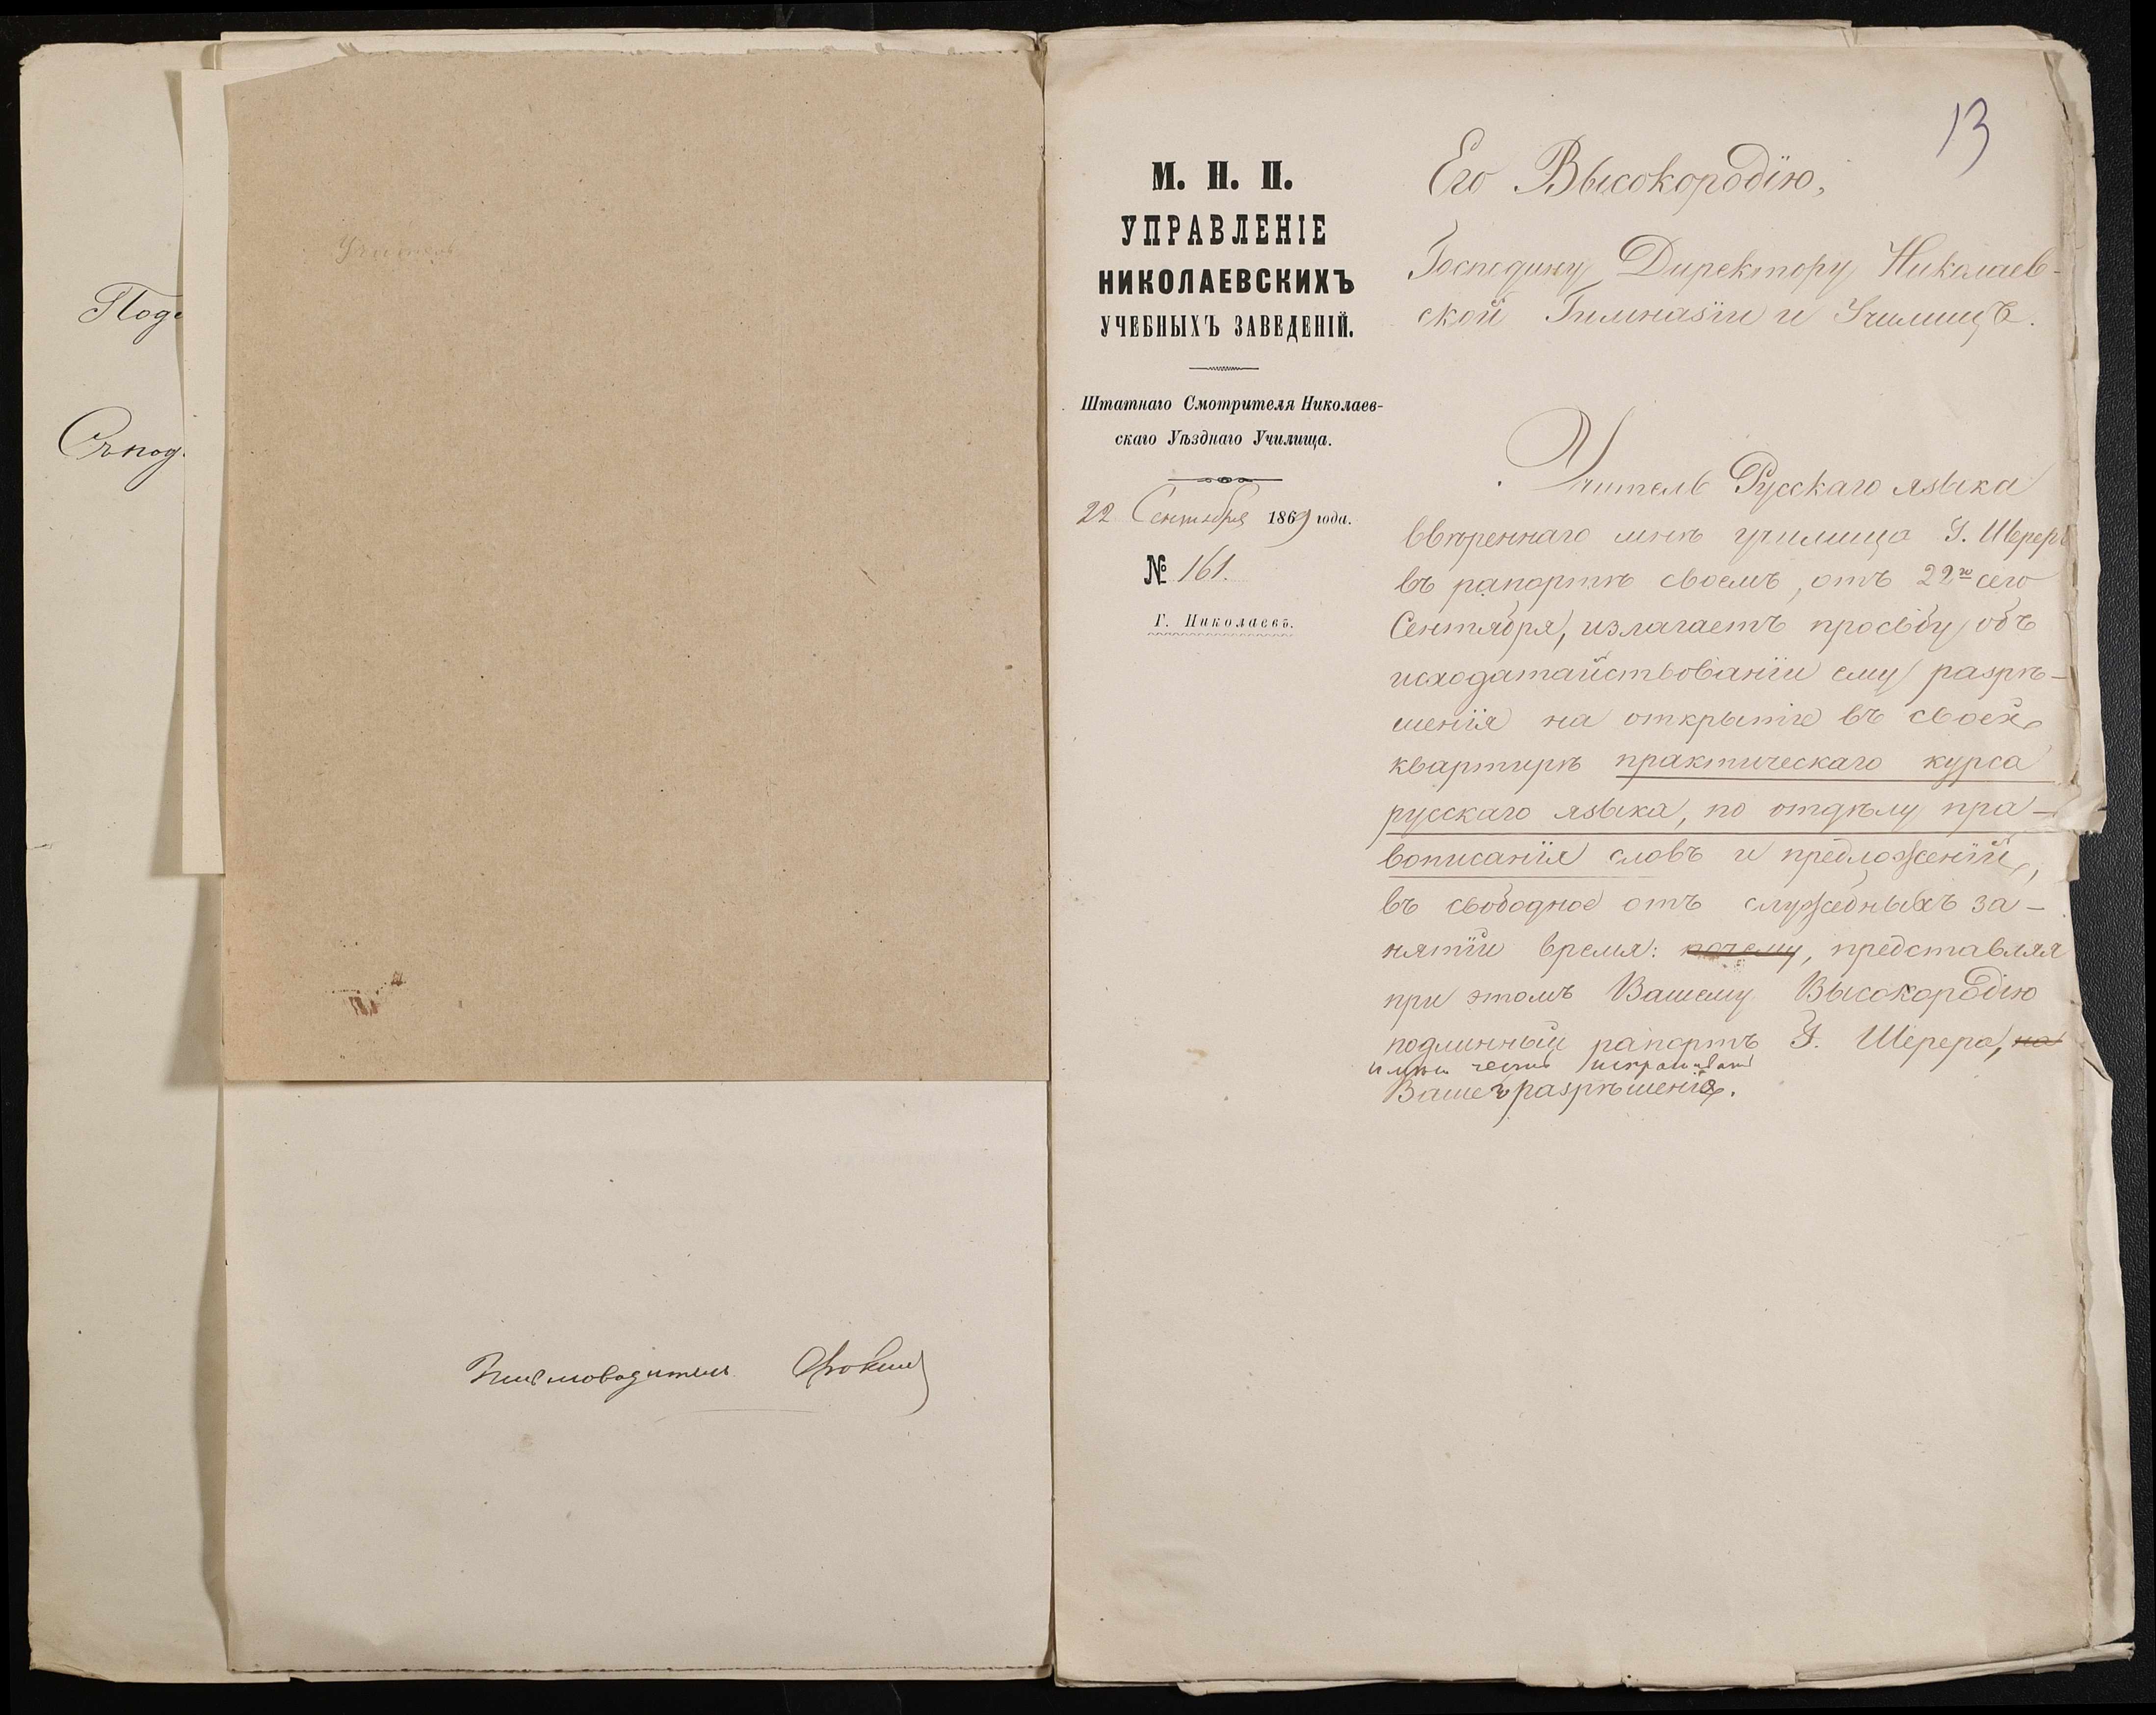 Под
Съ под
Учитель
Письмоводитель
13
М. Н. П.
УПРАВЛЕНІЕ
НИКОЛАЕВСКИХЪ
УЧЕБНЫХЪ ЗАВЕДЕНІЙ.
Штатнаго Смотрителя Николаев-
скаго Уѣзднаго Училища.
22 Сентября 1869 года.
№ 161.
Г. Николаевъ.
Его Высокородію,
Господину Директору Николаев-
ской Гимназіи и Училищъ.
Учитель Русскаго языка
ввѣреннаго мнѣ училища Г. Шереръ
въ рапортѣ своемъ, отъ 22го сего
Сентября, излагаетъ просьбу объ
исходатайствованіи ему разрѣ-
шенія на открытіе въ своей
квартирѣ практическаго курса
русскаго языка, по отдѣлу пра-
вописанія словъ и предложеній,
въ свободное отъ служебныхъ за-
нятій время: почему, представляя
при этомъ Вашему Высокородію
подлинный рапортъ Г. Шерера, на
имѣю честь испрашивать
Вашего разрѣшенія.